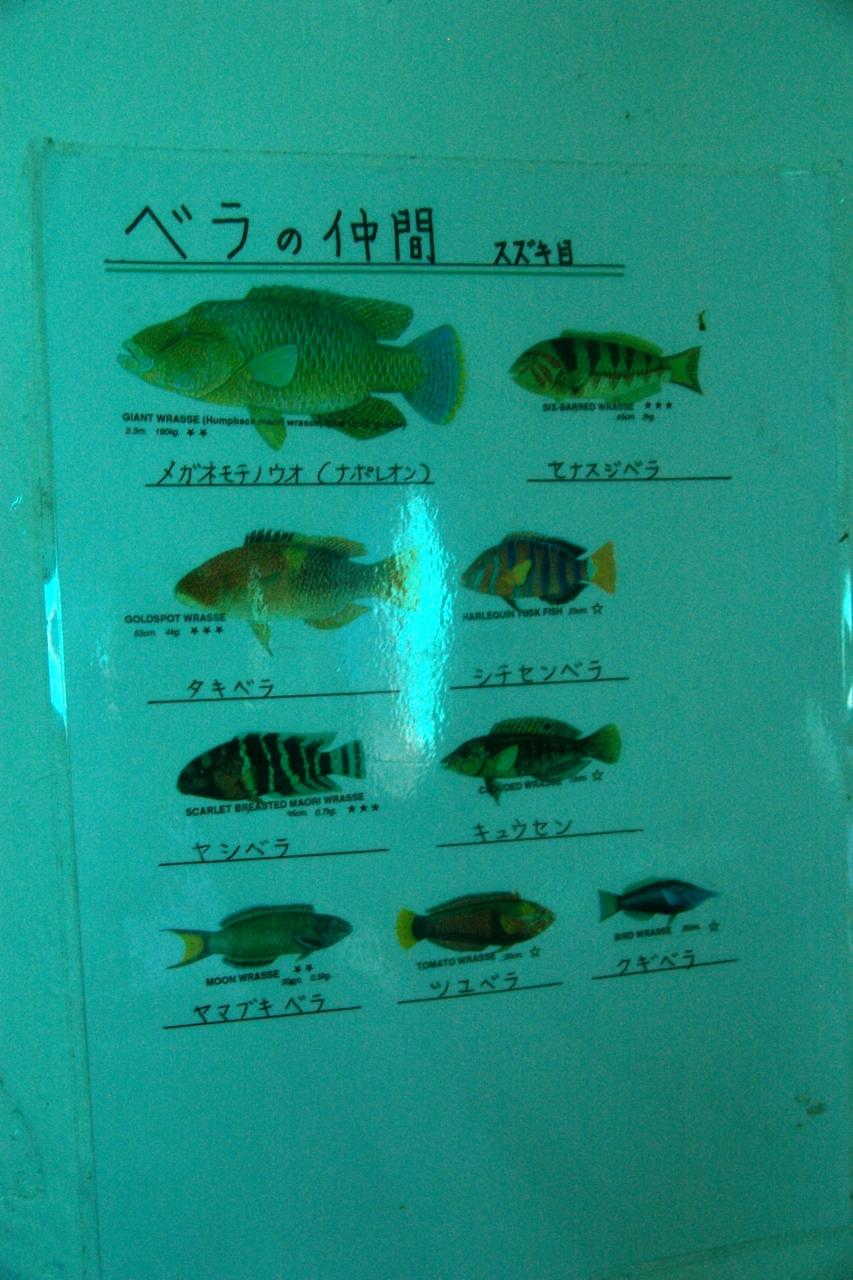 ベラの仲間 スズキ目
GIANT WRASSE (Humpback maori wrasse,
2.3m. 190kg. ★★
メガネモチノウオ (ナポレオン)
SIX-BARRED WRASSE ★★★
45cm. 2kg.
セナスジベラ
GOLDSPOT WRASSE
53cm. 4kg. ★★★
タキベラ
HARLEQUIN TUSK FISH 25cm ☆
シチセンベラ
SCARLET BREASTED MAORI WRASSE
0.7kg. ★★★
ヤシベラ
CLOUDED WRASSE ☆
キュウセン
MOON WRASSE ★★
0.5kg.
ヤマブキベラ
TOMATO WRASSE ☆
ツユベラ
BIRD WRASSE ☆
クギベラ